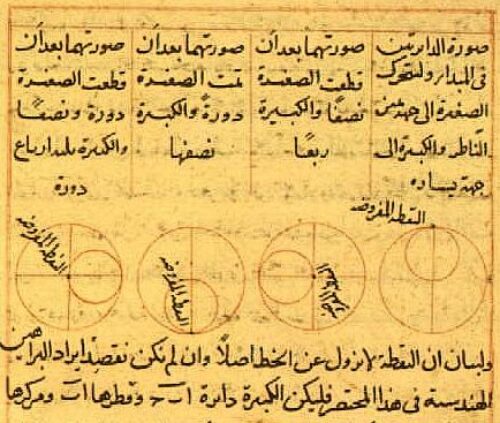 صورة الدايرتين
فى المبدا ولتتحرك
الصغيرة الى جهة يمين
الناظر والكبيرة الى
جهة يساره
صورتهما بعد ان
قطعت الصغيرة
نصفًا والكبيرة
ربعًا
صورتهما بعد ان
تمت الصغيرة
دورةً والكبيرة
نصفها
صورتهما بعد ان
قطعت الصغيرة
دورة ونصفًا
والكبيرة ثلثة ارباع
دورة
النقطة المفروضة
النقطة المفروضة
النقطة المفروضة
النقطة المفروضة
ولبيان ان النقطة لا تزول عن الخط اصلًا وان لم نكن نقصد ايراد البراهين
الهندسية فى هذا المختصر فليكن الكبيرة دايرة اب ج وقطرها اب ومركزها